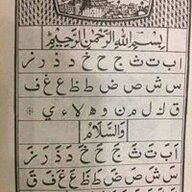 بِسْمِ اللّٰهِ الرَّحْمٰنِ الرَّحِيْمِ
ا ب ت ث ج ح خ د ذ ر ز
س ش ص ض ط ظ ع غ ف
ق ك ل م ن و ه لا ء ي
وَالسَّلَامُ
اَ بَ تَ ثَ جَ حَ خَ دَ ذَ رَ زَ
سَ شَ صَ ضَ طَ ظَ عَ غَ فَ قَ